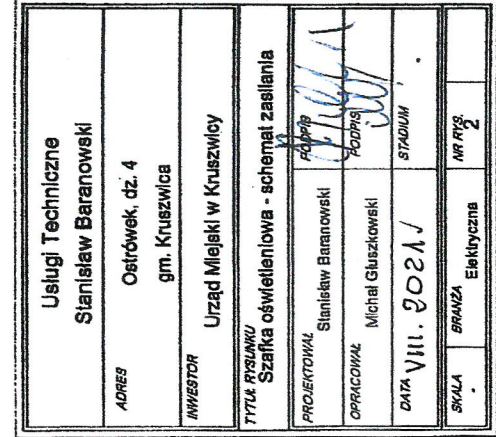 Usługi Techniczne
Stanisław Baranowski
ADRES
Ostrówek, dz. 4
gm. Kruszwica
INWESTOR
Urząd Miejski w Kruszwicy
TYTUŁ RYSUNKU
Szafka oświetleniowa - schemat zasilania
PROJEKTOWAŁ
Stanisław Baranowski
PODPIS
OPRACOWAŁ
Michał Głuszkowski
PODPIS
DATA VIII. 2021
STADIUM
-
SKALA
-
BRANŻA
Elektryczna
NR RYS.
2